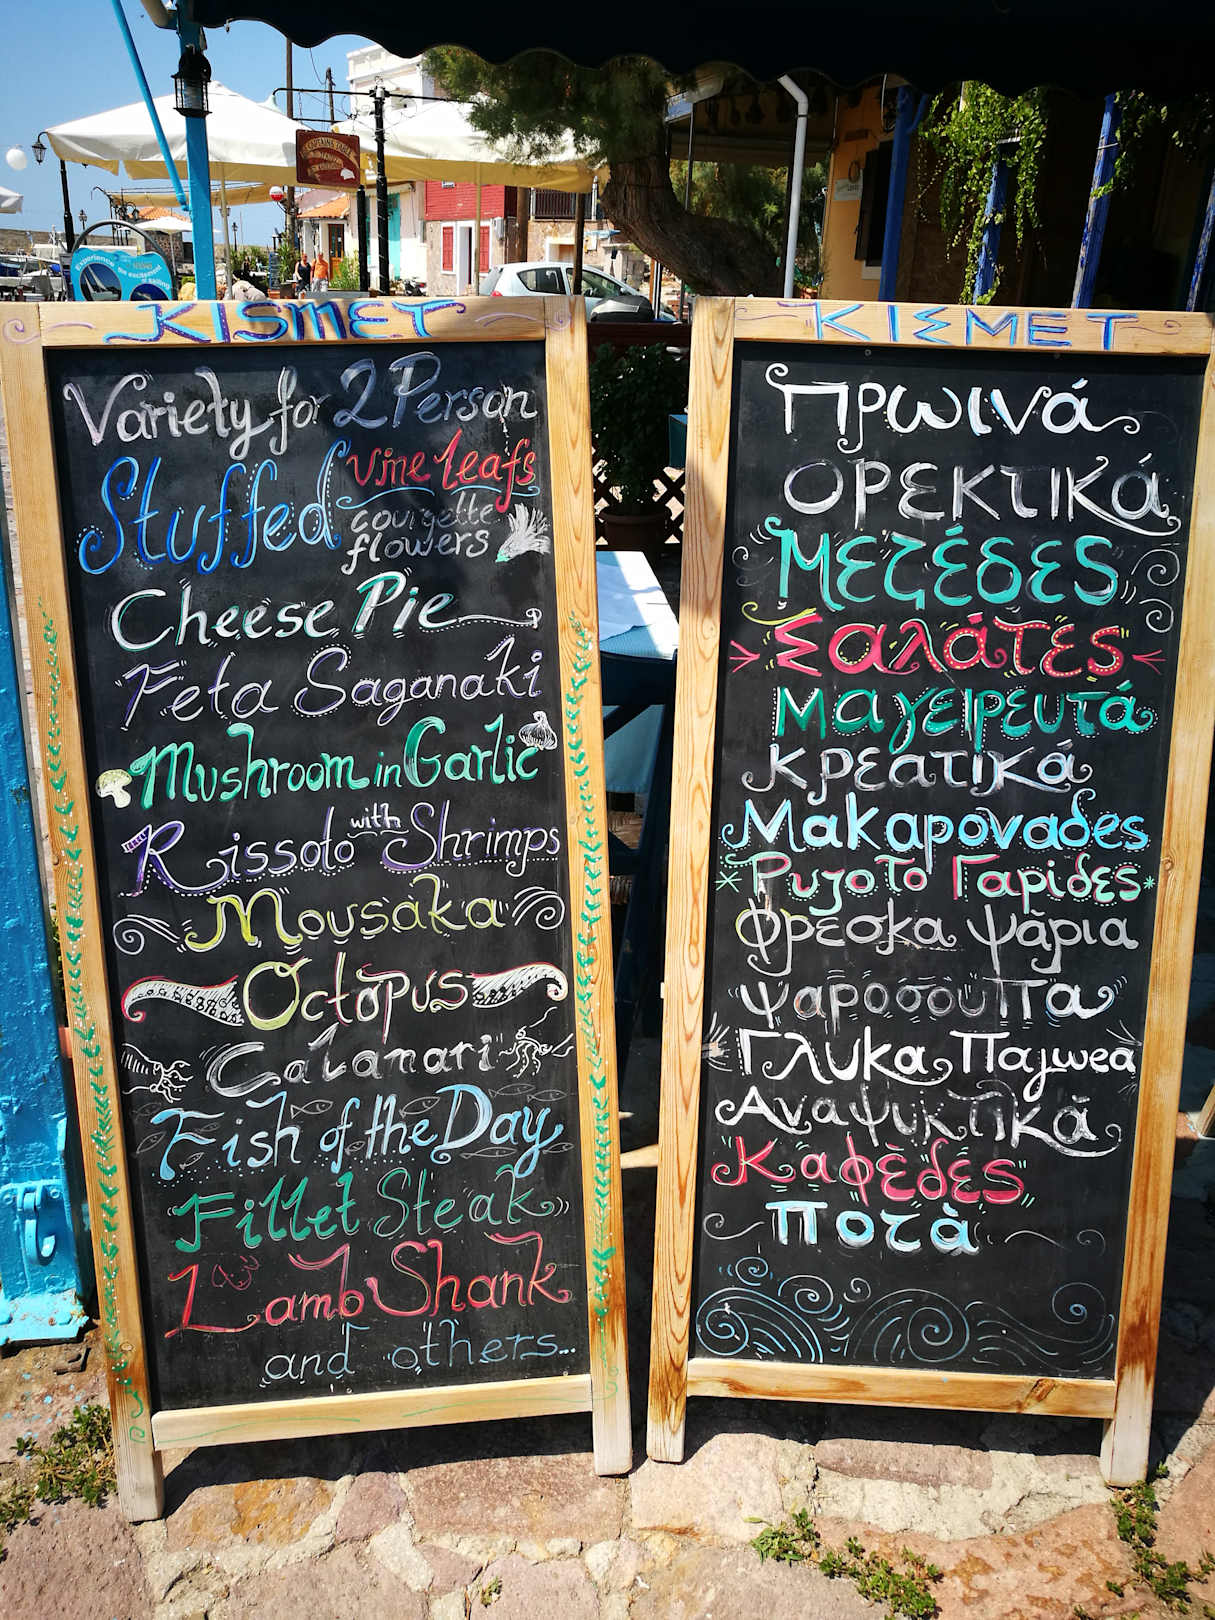 KISMET
Variety for 2 Person
Stuffed vine leafs
courgette
flowers
Cheese Pie
Feta Saganaki
Mushroom in Garlic
Rissoto with Shrimps
Mousaka
Octopus
Calamari
Fish of the Day
Fillet Steak
Lamb Shank
and others...
ΚΙΣΜΕΤ
Πρωινά
ΟΡΕΚΤΙΚά
Μεζέδες
Σαλάτες
Μαγειρευτά
Κρεατικά
Μακαρονάδες
Ρυζοτο Γαρίδες
Φρεσκα ψάρια
ψαροσουπα
Γλυκα Παγωτα
Αναψυκτικά
Καφέδες
Ποτά
Experience
the excitement
of sailing